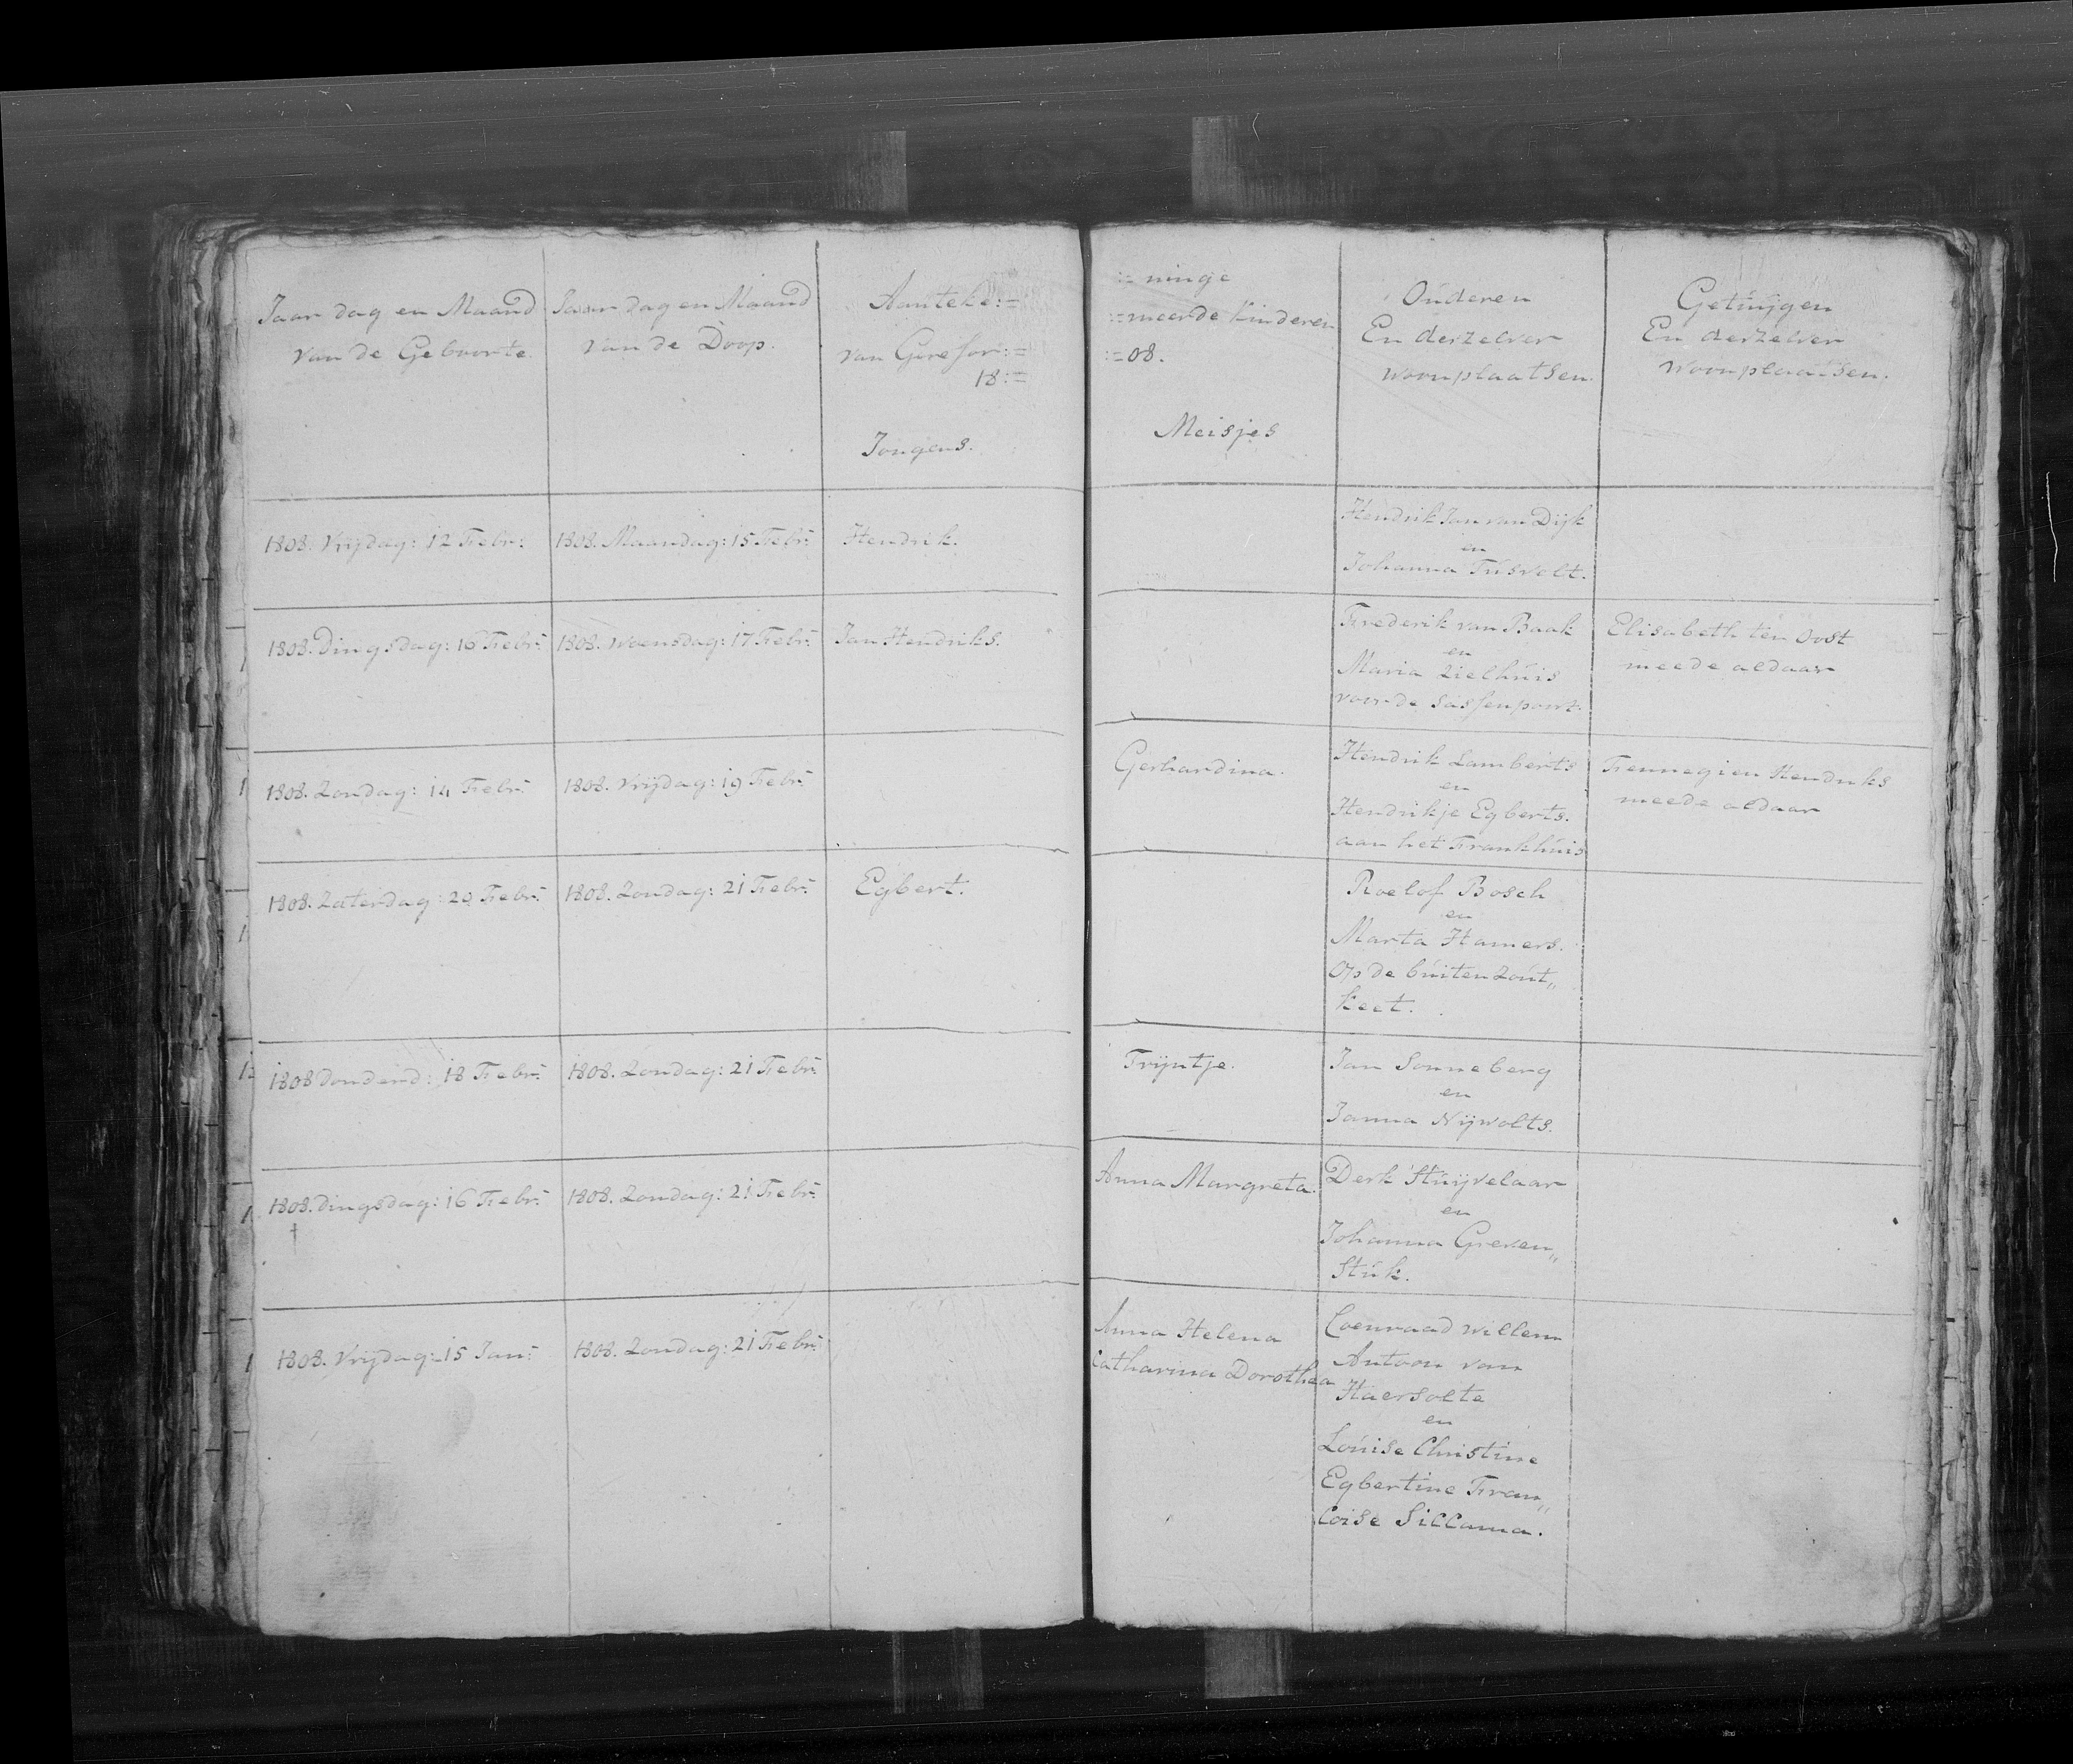 Jaar dag en Maand
van de Geboorte.
Jaar dag en Maand
van de Doop.
Aanteke:=
van Gerefor:=
18:=
Jongens.
:=ninge
:=meerde Kinderen
:=08.
Meisjes
Ouderen
En derzelver
woonplaatsen.
Getuijgen
En derzelver
Woonplaatsen.
1808. Vrijdag: 12 Febr:
1808. Maandag: 15 Febr:
Hendrik.
Hendrik Jan van Dijk
en
Johanna Tusvelt.
1808. Dingsdag: 16 Febr:
1808. Woensdag: 17 Febr:
Jan Hendriks.
Frederik van Baak
en
Maria Zielhuis
voor de Sassenpoort.
Elisabeth ten Oost
meede aldaar
1808. Zondag: 14 Febr:
1808. Vrijdag: 19 Febr:
Gerhardina.
Hendrik Lamberts
en
Hendrikje Egberts.
aan het Frankhuis
Fennegien Hendriks
meede aldaar
1808. Zaterdag: 20 Febr:
1808. Zondag: 21 Febr:
Egbert.
Roelof Bosch
en
Marta Hamers.
Op de buiten Zout,,
keet.
1808 Donderd: 18 Febr:
1808. Zondag: 21 Febr:
Trijntje.
Jan Sonneberg
en
Janna Nijvolts.
1808. dingsdag: 16 Febr:
†
1808. Zondag: 21 Febr:
Anna Margreta.
Derk Stuijvelaar
en
Johanna Greven,,
Stuk.
1808. Vrijdag: 15 Jan:
1808. Zondag: 21 Febr:
Anna Helena
Catharina Dorothea
Coenraad Willem
Antoon van
Haersolte
en
Louise Christine
Egbertine Fran,,
Coise Sillama.